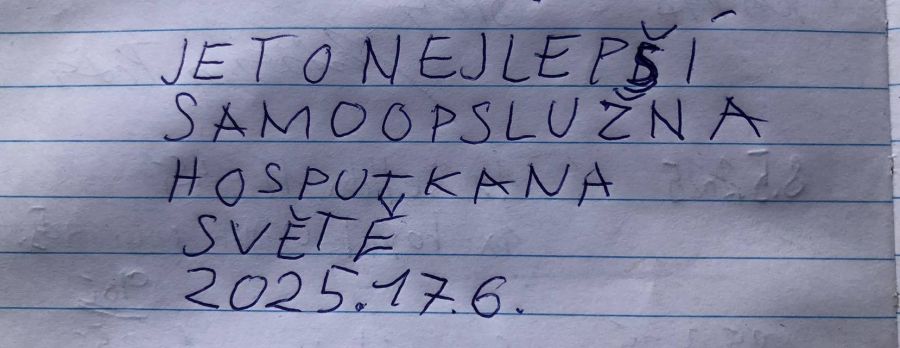 JE TO NEJLEPŠÍ
SAMOOPSLUŽNA
HOSPUTKANA
SVĚTĚ
2025.17.6.